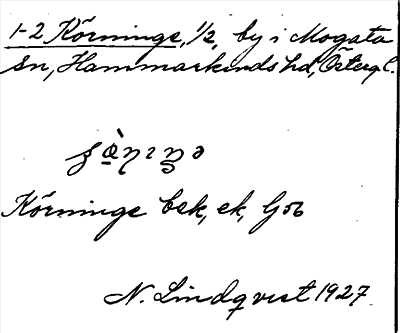 1-2 Körninge, 1/2, by i Mogata
sn, Hammarkinds hd, Östergl.
Körninge bek, ek, Gob
N. Lindqvist 1927